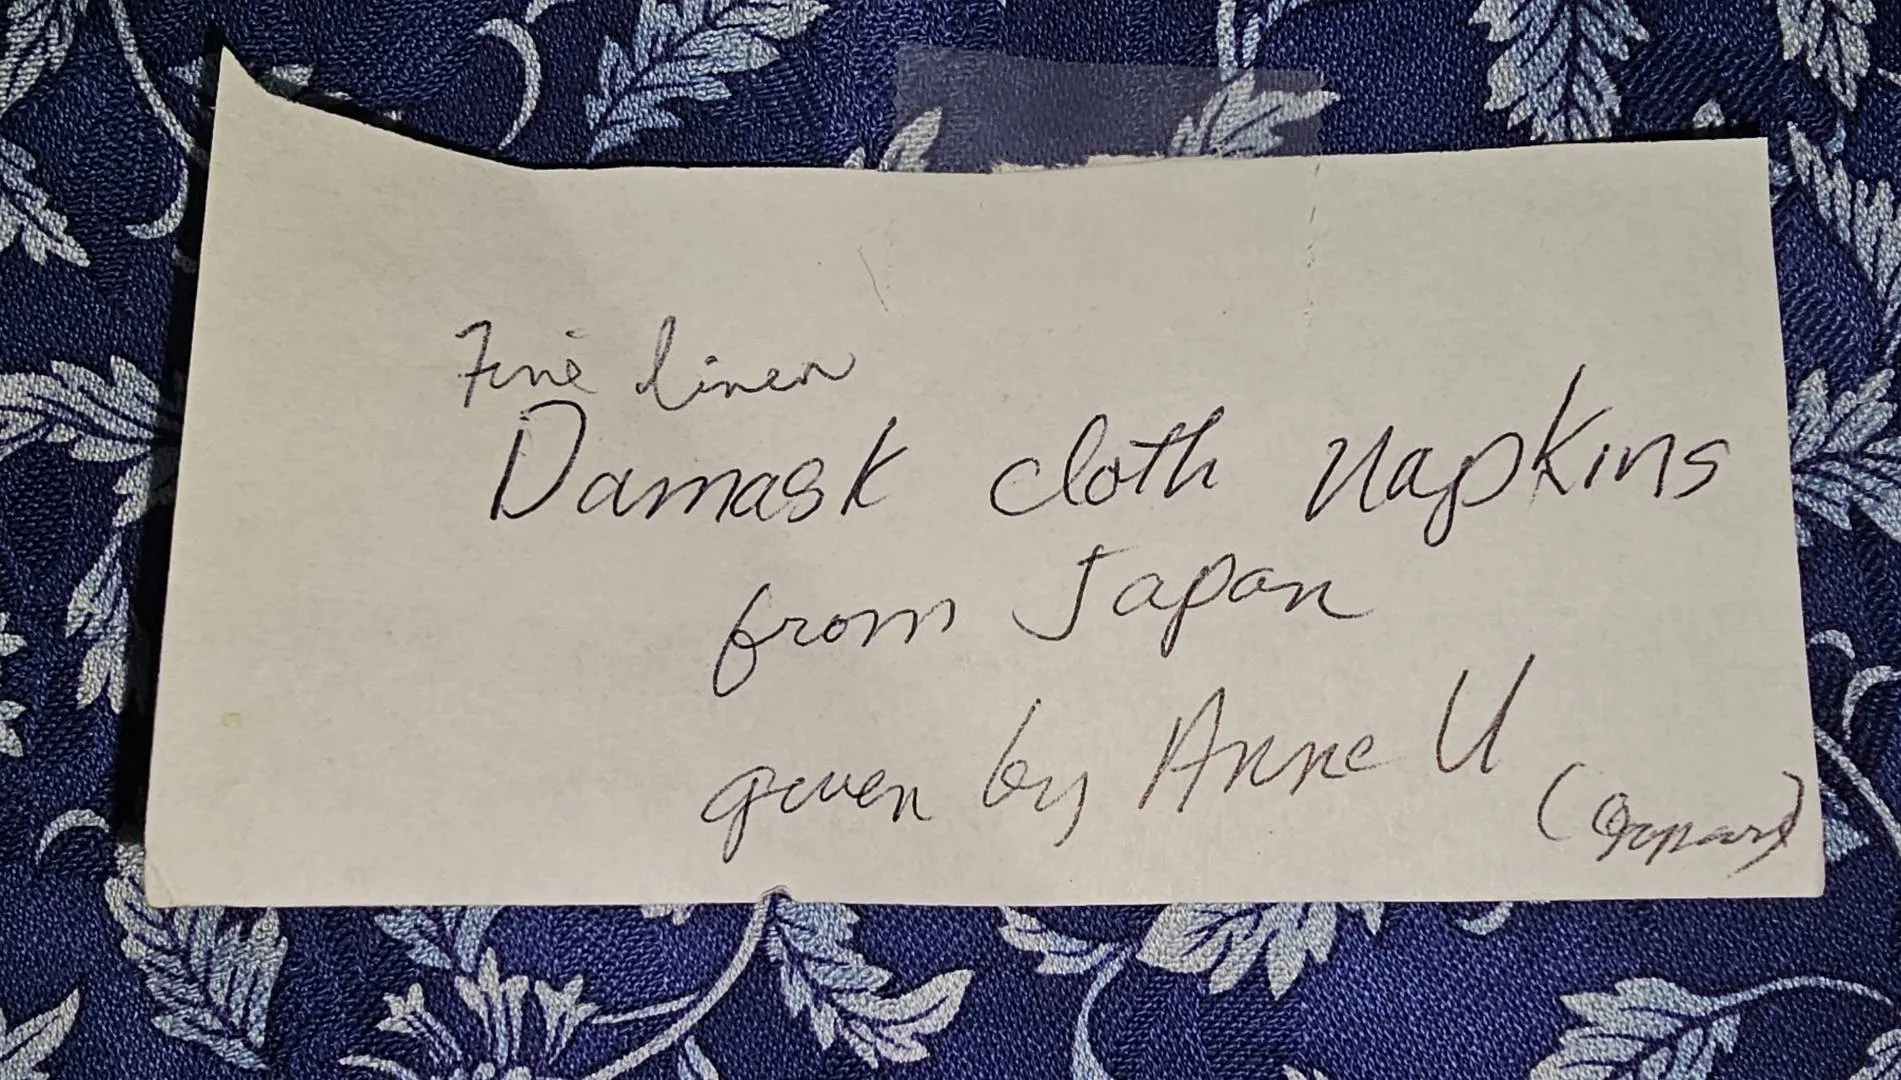 Fine linen
Damask cloth napkins
from Japan
given by Anne U